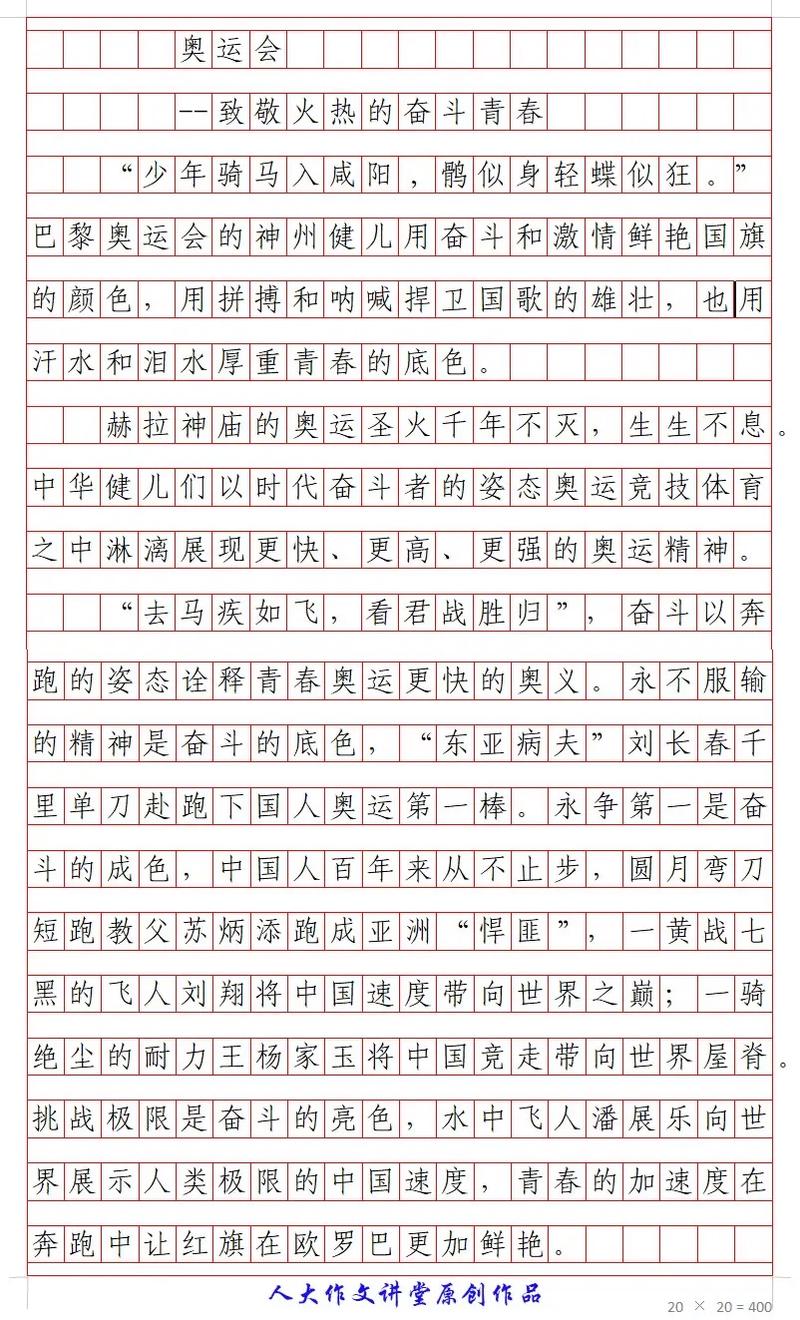 奥运会
--致敬火热的奋斗青春
“少年骑马入咸阳，鹘似身轻蝶似狂。”
巴黎奥运会的神州健儿用奋斗和激情鲜艳国旗
的颜色，用拼搏和呐喊捍卫国歌的雄壮，也用
汗水和泪水厚重青春的底色。
赫拉神庙的奥运圣火千年不灭，生生不息。
中华健儿们以时代奋斗者的姿态奥运竞技体育
之中淋漓展现更快、更高、更强的奥运精神。
“去马疾如飞，看君战胜归”，奋斗以奔
跑的姿态诠释青春奥运更快的奥义。永不服输
的精神是奋斗的底色，“东亚病夫”刘长春千
里单刀赴跑下国人奥运第一棒。永争第一是奋
斗的成色，中国人百年来从不止步，圆月弯刀
短跑教父苏炳添跑成亚洲“悍匪”，一黄战七
黑的飞人刘翔将中国速度带向世界之巅；一骑
绝尘的耐力王杨家玉将中国竞走带向世界屋脊。
挑战极限是奋斗的亮色，水中飞人潘展乐向世
界展示人类极限的中国速度，青春的加速度在
奔跑中让红旗在欧罗巴更加鲜艳。
人大作文讲堂原创作品
20 × 20 = 400